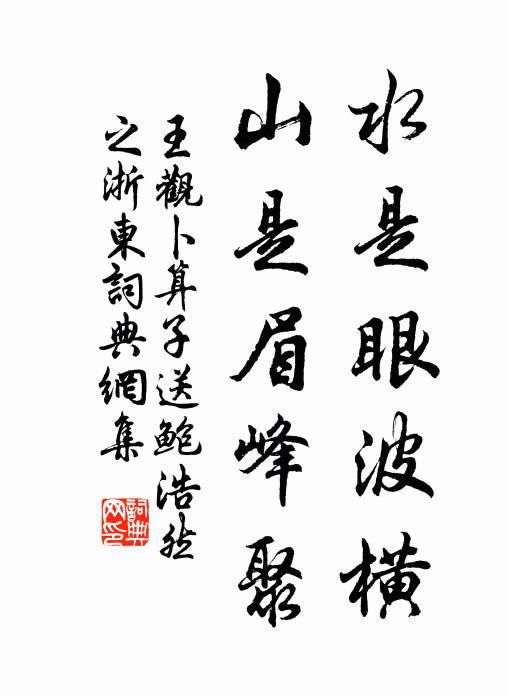 水是眼波橫
山是眉峰聚
王觀卜算子送鮑浩然
之浙東詞典網集
詞典网印